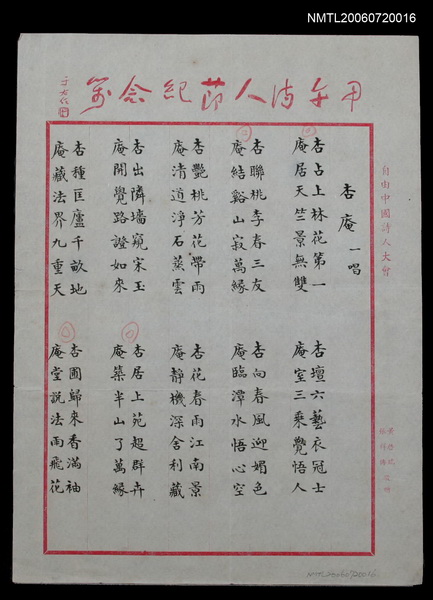 NMTL20060720016
甲午詩人節紀念箋
于右任
自由中國詩人大會
杏庵一唱
杏占上林花第一
庵居天竺景無雙
杏壇六藝衣冠士
庵室三乘覺悟人
杏聯桃李春三友
庵結谿山寂萬緣
杏向春風迎媚色
庵臨潭水悟心空
杏艷桃芳花帶雨
庵清道淨石蒸雲
杏花春雨江南景
庵靜機深舍利藏
杏出隣墻窺宋玉
庵開覺路證如來
杏居上苑超群卉
庵築半山了萬緣
杏種匡廬千畝地
庵藏法界九重天
杏圃歸來香滿袖
庵堂説法雨飛花
NMTL20060720016